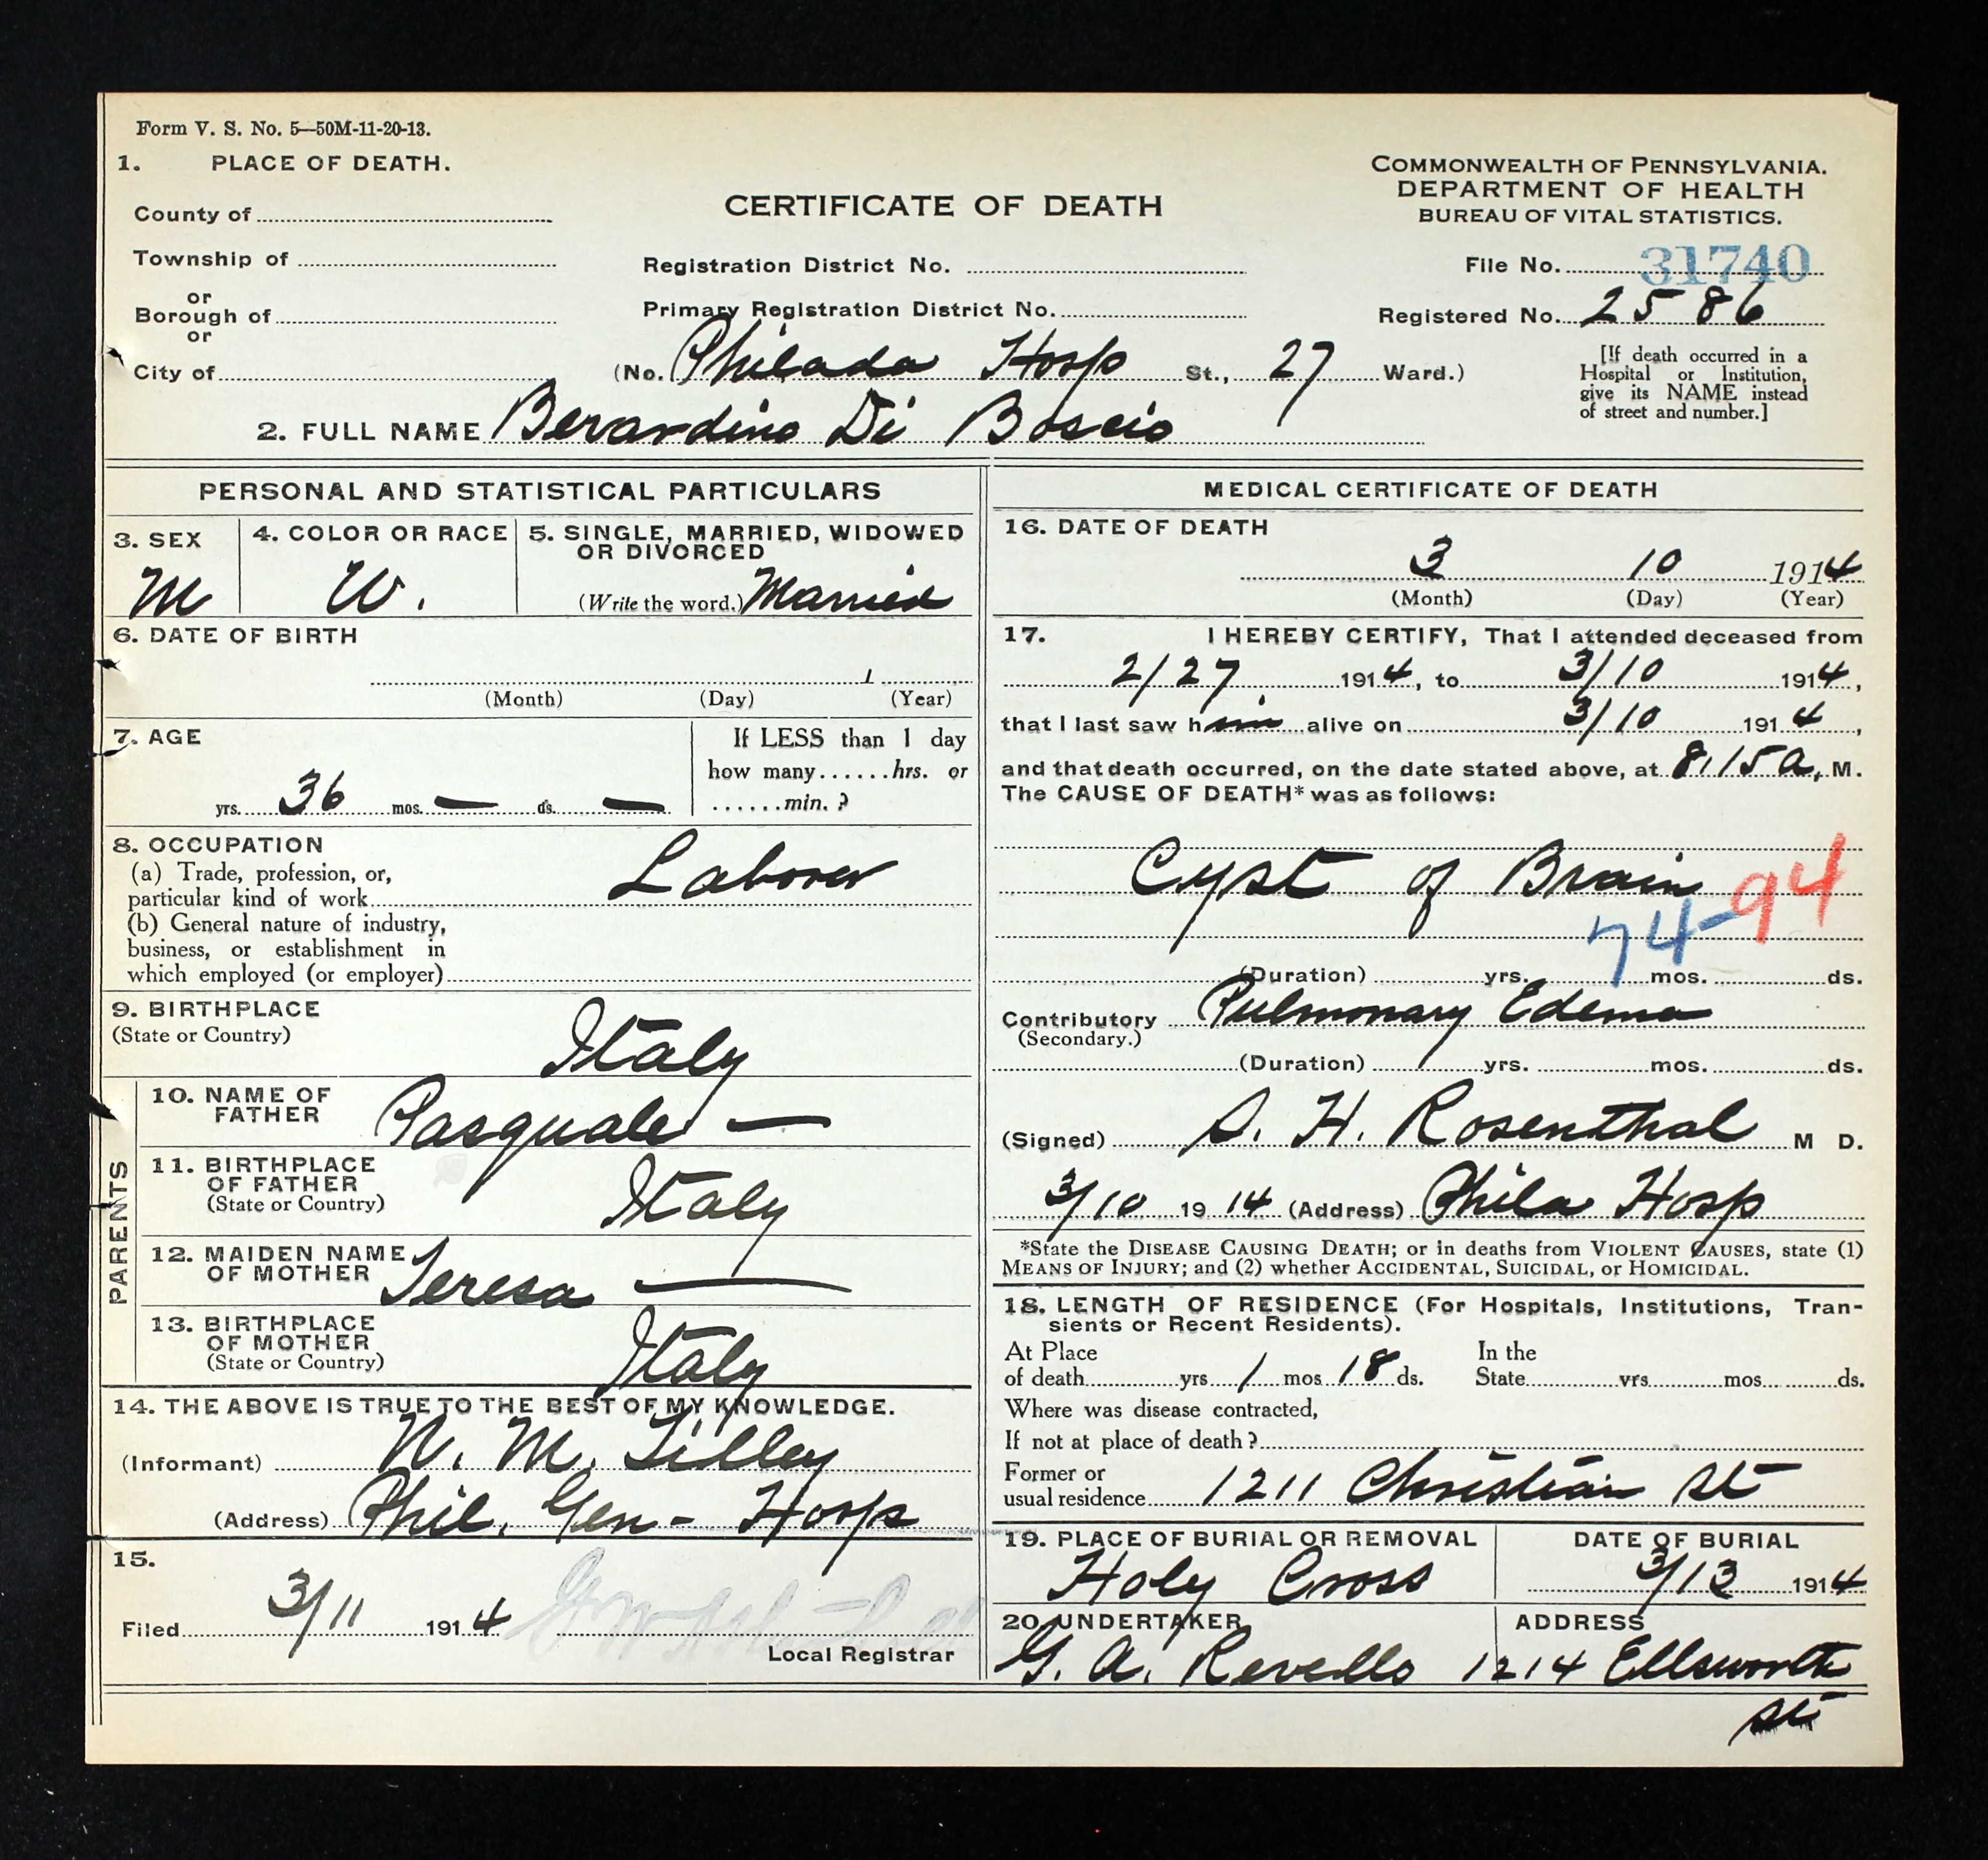 Form V. S. No. 5—50M-11-20-13.
1. PLACE OF DEATH.
County of
Township of
or
Borough of
or
City of
CERTIFICATE OF DEATH
Registration District No.
Primary Registration District No.
(No. Philada Hosp St., 27 Ward.)
COMMONWEALTH OF PENNSYLVANIA.
DEPARTMENT OF HEALTH
BUREAU OF VITAL STATISTICS.
File No. 31740
Registered No. 2586
[If death occurred in a
Hospital or Institution,
give its NAME instead
of street and number.]
2. FULL NAME Berardino Di Boscio
PERSONAL AND STATISTICAL PARTICULARS
3. SEX
M
4. COLOR OR RACE
W.
5. SINGLE, MARRIED, WIDOWED
OR DIVORCED
(Write the word.) Married
6. DATE OF BIRTH
1
(Month) (Day) (Year)
7. AGE
yrs. 36 mos. — ds. —
If LESS than 1 day
how many......hrs. or
......min. ?
8. OCCUPATION
(a) Trade, profession, or,
particular kind of work Laborer
(b) General nature of industry,
business, or establishment in
which employed (or employer)
9. BIRTHPLACE
(State or Country)
Italy
PARENTS
10. NAME OF
FATHER
Pasquale —
11. BIRTHPLACE
OF FATHER
(State or Country)
Italy
12. MAIDEN NAME
OF MOTHER
Teresa —
13. BIRTHPLACE
OF MOTHER
(State or Country)
Italy
14. THE ABOVE IS TRUE TO THE BEST OF MY KNOWLEDGE.
(Informant) N. M. Lilley
(Address) Phil. Gen- Hosp
15.
Filed 3/11 1914
Local Registrar
MEDICAL CERTIFICATE OF DEATH
16. DATE OF DEATH
3 10 1914
(Month) (Day) (Year)
17. I HEREBY CERTIFY, That I attended deceased from
2/27 1914, to 3/10 1914,
that I last saw him alive on 3/10 1914,
and that death occurred, on the date stated above, at 8.15 a. M.
The CAUSE OF DEATH* was as follows:
Cyst of Brain
74-94
(Duration) yrs. mos. ds.
Contributory Pulmonary Edema
(Secondary.)
(Duration) yrs. mos. ds.
(Signed) S. H. Rosenthal M D.
3/10 1914 (Address) Phila Hosp
*State the DISEASE CAUSING DEATH; or in deaths from VIOLENT CAUSES, state (1)
MEANS OF INJURY; and (2) whether ACCIDENTAL, SUICIDAL, or HOMICIDAL.
18. LENGTH OF RESIDENCE (For Hospitals, Institutions, Tran-
sients or Recent Residents).
At Place
of death yrs. 1 mos 18 ds.
In the
State yrs. mos. ds.
Where was disease contracted,
If not at place of death?
Former or
usual residence 1211 Christian St
19. PLACE OF BURIAL OR REMOVAL
Holy Cross
DATE OF BURIAL
3/13 1914
20 UNDERTAKER
G. A. Revello
ADDRESS
1214 Ellsworth
St